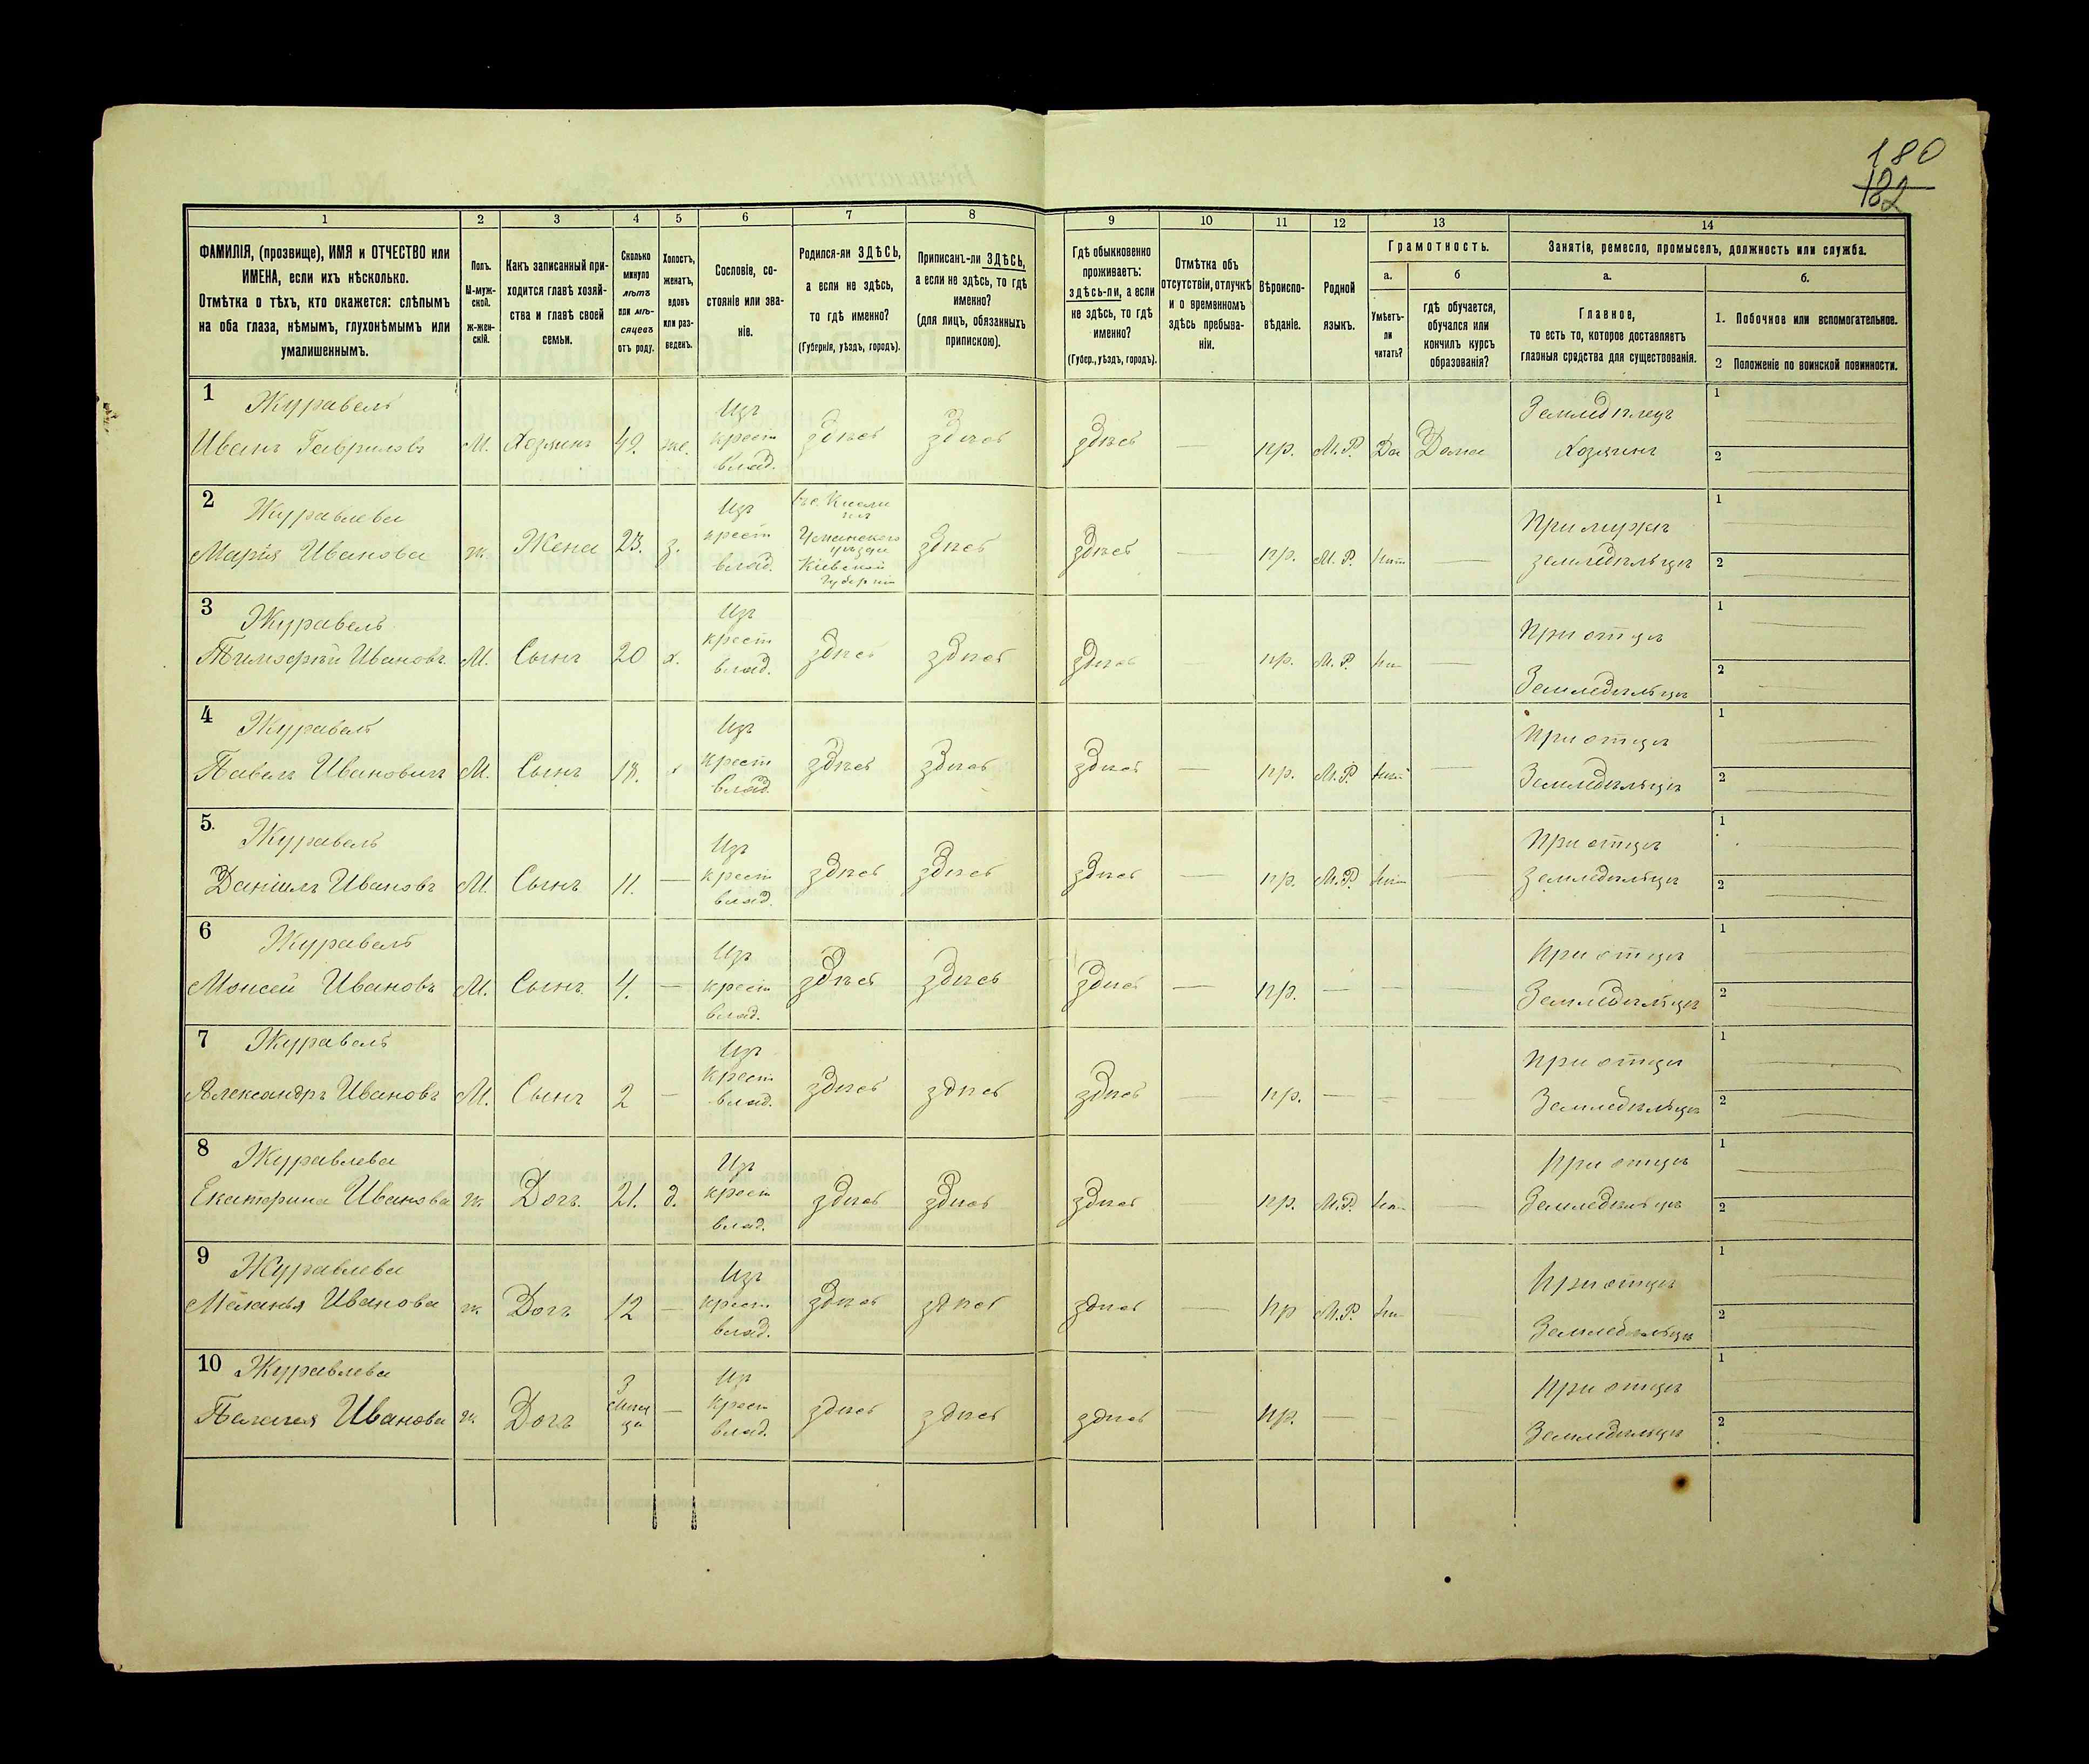 180
182
1 2 3 4 5 6 7 8 9 10 11 12 13 14
ФАМИЛІЯ, (прозвище), ИМЯ и ОТЧЕСТВО или
ИМЕНА, если ихъ нѣсколько.
Отмѣтка о тѣхъ, кто окажется: слѣпымъ
на оба глаза, нѣмымъ, глухонѣмымъ или
умалишеннымъ.
Полъ.
М-муж-
ской.
ж-жен-
скій.
Какъ записанный при-
ходится главѣ хозяй-
ства и главѣ своей
семьи.
Сколько
минуло
лѣтъ
или мѣ-
сяцевъ
отъ роду.
Холостъ,
женатъ,
вдовъ
или раз-
веденъ.
Сословіе, со-
стояніе или зва-
ніе.
Родился-ли ЗДѢСЬ,
а если не здѣсь,
то гдѣ именно?
(Губернія, уѣздъ, городъ).
Приписанъ-ли ЗДѢСЬ,
а если не здѣсь, то гдѣ
именно?
(для лицъ, обязанныхъ
припискою).
Гдѣ обыкновенно
проживаетъ:
здѣсь-ли, а если
не здѣсь, то гдѣ
именно?
(Губер., уѣздъ, городъ).
Отмѣтка объ
отсутствіи, отлучкѣ
и о временномъ
здѣсь пребыва-
ніи.
Вѣроиспо-
вѣданіе.
Родной
языкъ.
Грамотность.
а. б
Умѣетъ-
ли
читать?
гдѣ обучается,
обучался или
кончилъ курсъ
образованія?
Занятіе, ремесло, промыселъ, должность или служба.
а. б.
Главное,
то есть то, которое доставляетъ
главныя средства для существованія.
1. Побочное или вспомогательное.
2 Положеніе по воинской повинности.
1 Журавель Изъ Земледѣлецъ 1
Иванъ Гавриловъ М. Хозяинъ 49. же. крест здѣсь здѣсь здѣсь — пр. М.Р. Да Дома Хозяинъ 2
влад.
2 Журавлева Изъ 1
Марія Иванова ж. Жена 23. з. крест Уманского уѣзда здѣсь здѣсь — пр. М.Р. нѣт — При мужѣ
влад. Кіевской Губерніи земледѣльцѣ 2
3 Журавель Изъ При отцѣ 1
Тимофѣй Ивановъ М. Сынъ 20 х. крест здѣсь здѣсь здѣсь пр. М.Р. — 2
влад. Земледѣльцѣ
4 Журавель Изъ При отцѣ 1
Павелъ Ивановичъ М. Сынъ крест здѣсь здѣсь здѣсь — пр. М.Р. нѣт — Земледѣльцѣ 2
влад.
5. Журавель Изъ При отцѣ 1
Даніилъ Ивановъ М. Сынъ 11. — крест здѣсь здѣсь здѣсь — пр. М.Р. нѣт — земледѣльцѣ 2
влад.
6 Журавель Изъ При отцѣ 1
Моисей Ивановъ М. Сынъ 4. — крест здѣсь здѣсь здѣсь — пр. — — — Земледѣльцѣ 2
влад.
7 Журавель Изъ При отцѣ 1
Александръ Ивановъ М. Сынъ 2 — крест здѣсь здѣсь здѣсь — пр. — — — Земледѣльцѣ 2
влад.
8 Журавлева Изъ При отцѣ 1
Екатерина Иванова ж. Дочь. 21. д. крест здѣсь здѣсь здѣсь — пр. М.Р. нѣт — Земледѣльцѣ 2
влад.
9 Журавлева Изъ При отцѣ 1
Меланья Иванова ж. Дочь 12 — крест здѣсь здѣсь здѣсь — пр М.Р. — Земледѣльцѣ 2
влад.
10 Журавлева 3 Из При отцѣ 1
Пелагея Иванова ж. Дочь — крест здѣсь здѣсь здѣсь — пр. — — — Земледѣльцѣ 2
влад.